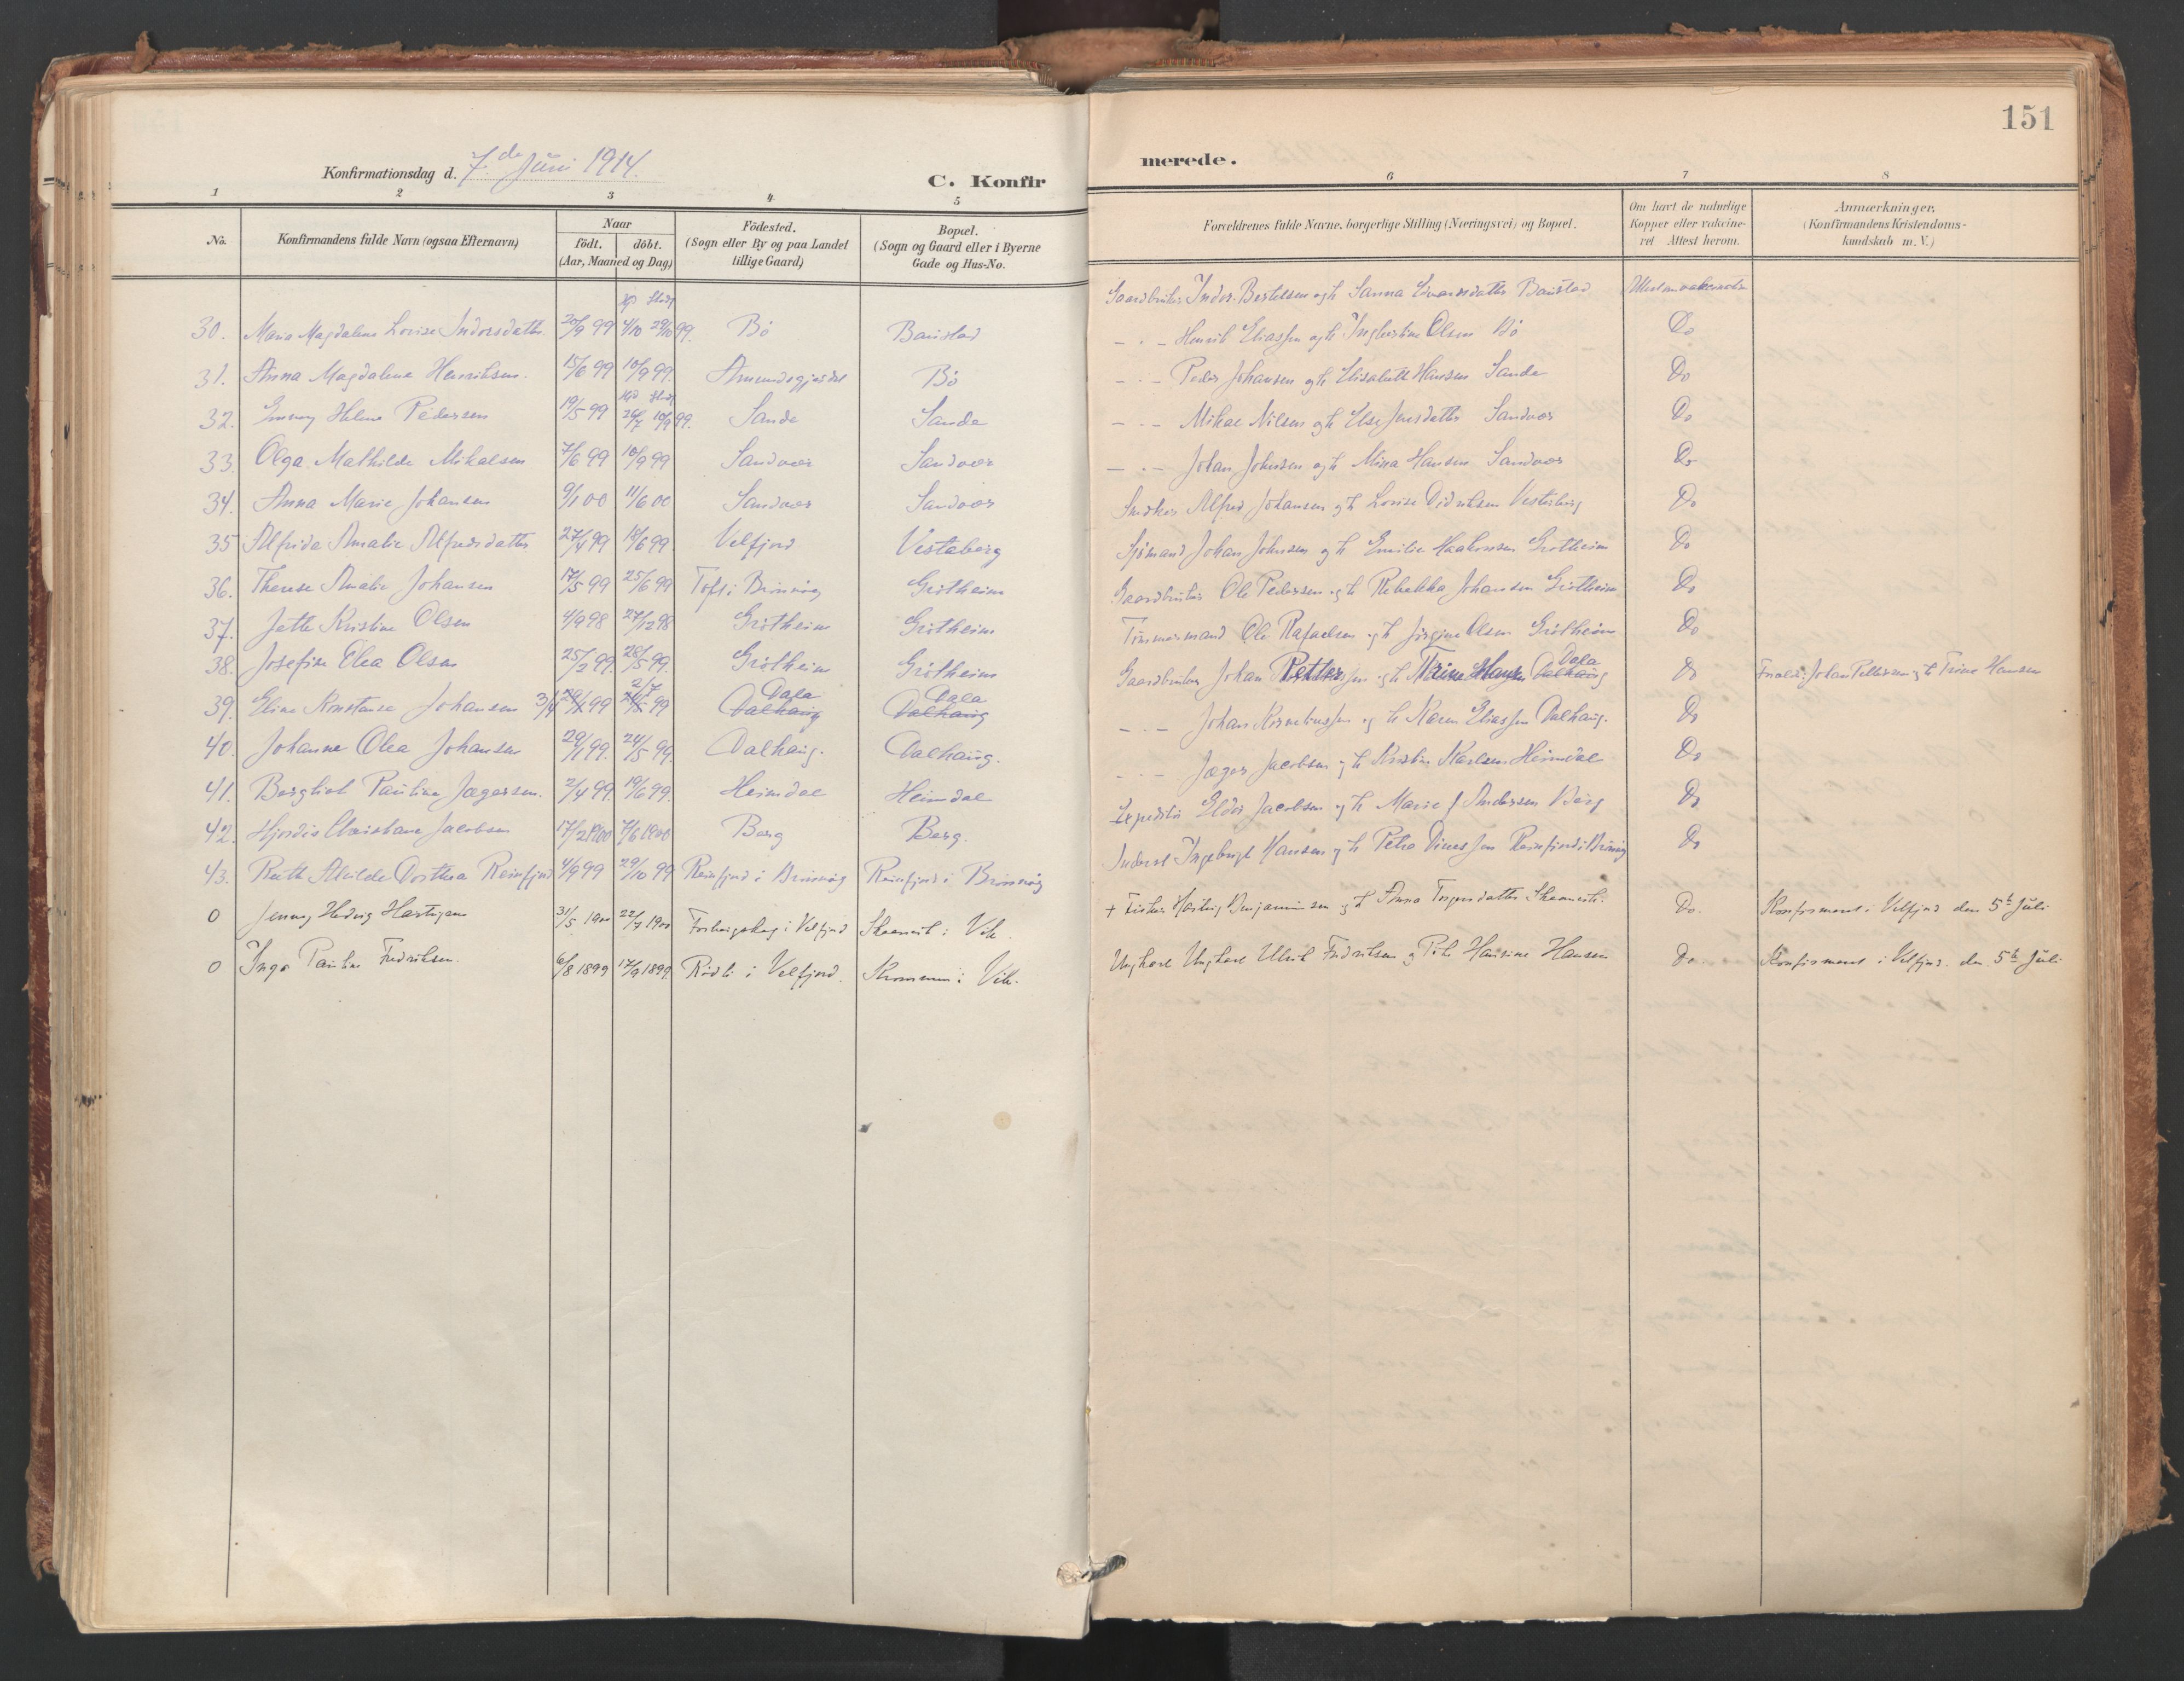 151
Konfirmationsdag d. 7.de Juni 1914.
C. Konfirmerede.
1 2 3 4 5 6 7 8
No.
Konfirmandens fulde Navn (ogsaa Efternavn)
Naar
födt. döbt.
(Aar, Maaned og Dag)
Födested.
(Sogn eller By og paa Landet
tillige Gaard)
Bopæl.
(Sogn og Gaard eller i Byerne
Gade og Hus-No.
Forældrenes fulde Navne, borgerlige Stilling (Næringsvei) og Bopæl.
Om havt de naturlige
Kopper eller vakcine-
ret Attest herom.
Anmærkninger.
(Konfirmandens Kristendoms-
kundskab m. V.)
30. Maria Magdalena Lovise Indorsdatter 20/9 99 4/10 29/10 99. Bö Baustad Gaardbruker Indor Bertelsen og h Sanna Baustad
31. Anna Magdalena Henriksen. 15/6 99 10/9 99. Bö – " – Henrik Eliassen og h Olsen Bö Do
32. Emmy Helene Pedersen 19/5 99 24/7 10/9 99. Sande Sande – " – Peder Johansen og h Elisabeth Hansen Sande Do
33. Olga Mathilde Mikalsen 7/6 99 10/9 99 Sandvær Sandvær – " – Mikae Nilsen og h Else Jensdatter Sandvær Do
34. Anna Marie Johansen 9/1 00 11/6 00 Sandvær Sandvær – " – Johan Johnsen og h Mina Hansen Sandvær Do
35 Alfrida Amalie Alfredsdatter 27/4 99 18/6 99. Velfjord Vistaberg Snedker Alfred Johansen og h Lovise Didriksen Do
36. Therese Amalie Johansen 17/5 99 25/6 99 Toft i Brönnöy Grötheim Sjömand Johan Johnsen og h Emilie Haakonsen Grötheim Do
37. Jette Kristine Olsen 4/9 98 27/12 98 Grötheim Grötheim Gaardbruker Ole Pedersen og h Rebekka Johansen Grötheim Do
38. Josefine Elea Olsen 25/2 99. 28/5 99. Grötheim Grötheim Timmermand Ole Rafaelsen og h Jörgine Olsen Grötheim Do
39. Eline Konstanse Johansen 3/4 99 2/7 99 Dalhaug Dala Dalhaug Dala Gaardbruker Johan Petter og h Trine Hansen Dalhaug Dala Do Johan Pettersen og h Trine Hansen
40. Johanne Olea Johansen 29/1 99. 24/5 99. Dalhaug. Dalhaug. – " – Johan Korneliussen og h Karen Eliassen Dalhaug. Do
41. Bergliot Pauline Jægersen. 2/4 99. 19/6 99. Heimdal Heimdal – " – Jæger Jacobsen og h Kristine Karlsen Heimdal Do
42. Hjördis Christiane Jacobsen 17/2 1900 7/6 1900 Berg Berg. Expeditör Eldor Jacobsen og h Marie J Andersen Berg Do
43. Ruth Alvilde Dorthea Reinfjord 4/9 99 29/10 99 Reinfjord i Brönnöy Reinfjord i Brönnöy Inderst Ingebrigt Hansen og h Petra Reinfjord i Brönnöy Do
0 Jenny Hedvig Hartvigsen 31/5 1900 22/7 1900 i Velfjord i Vik. + Fisker Hartvig Benjaminsen og h Anna Torgersdatter Do. Konfirmeret i Velfjord den 5te Juli
0 Inga Pauline Fredriksen. 6/8 1899 17/9 1899. Rödli i Velfjord. i Vik. Ungkarl Ungkarl Ulrik Fredriksen og Pike Hansine Hansen Do. Konfirmeret i Velfjord. den 5te Juli